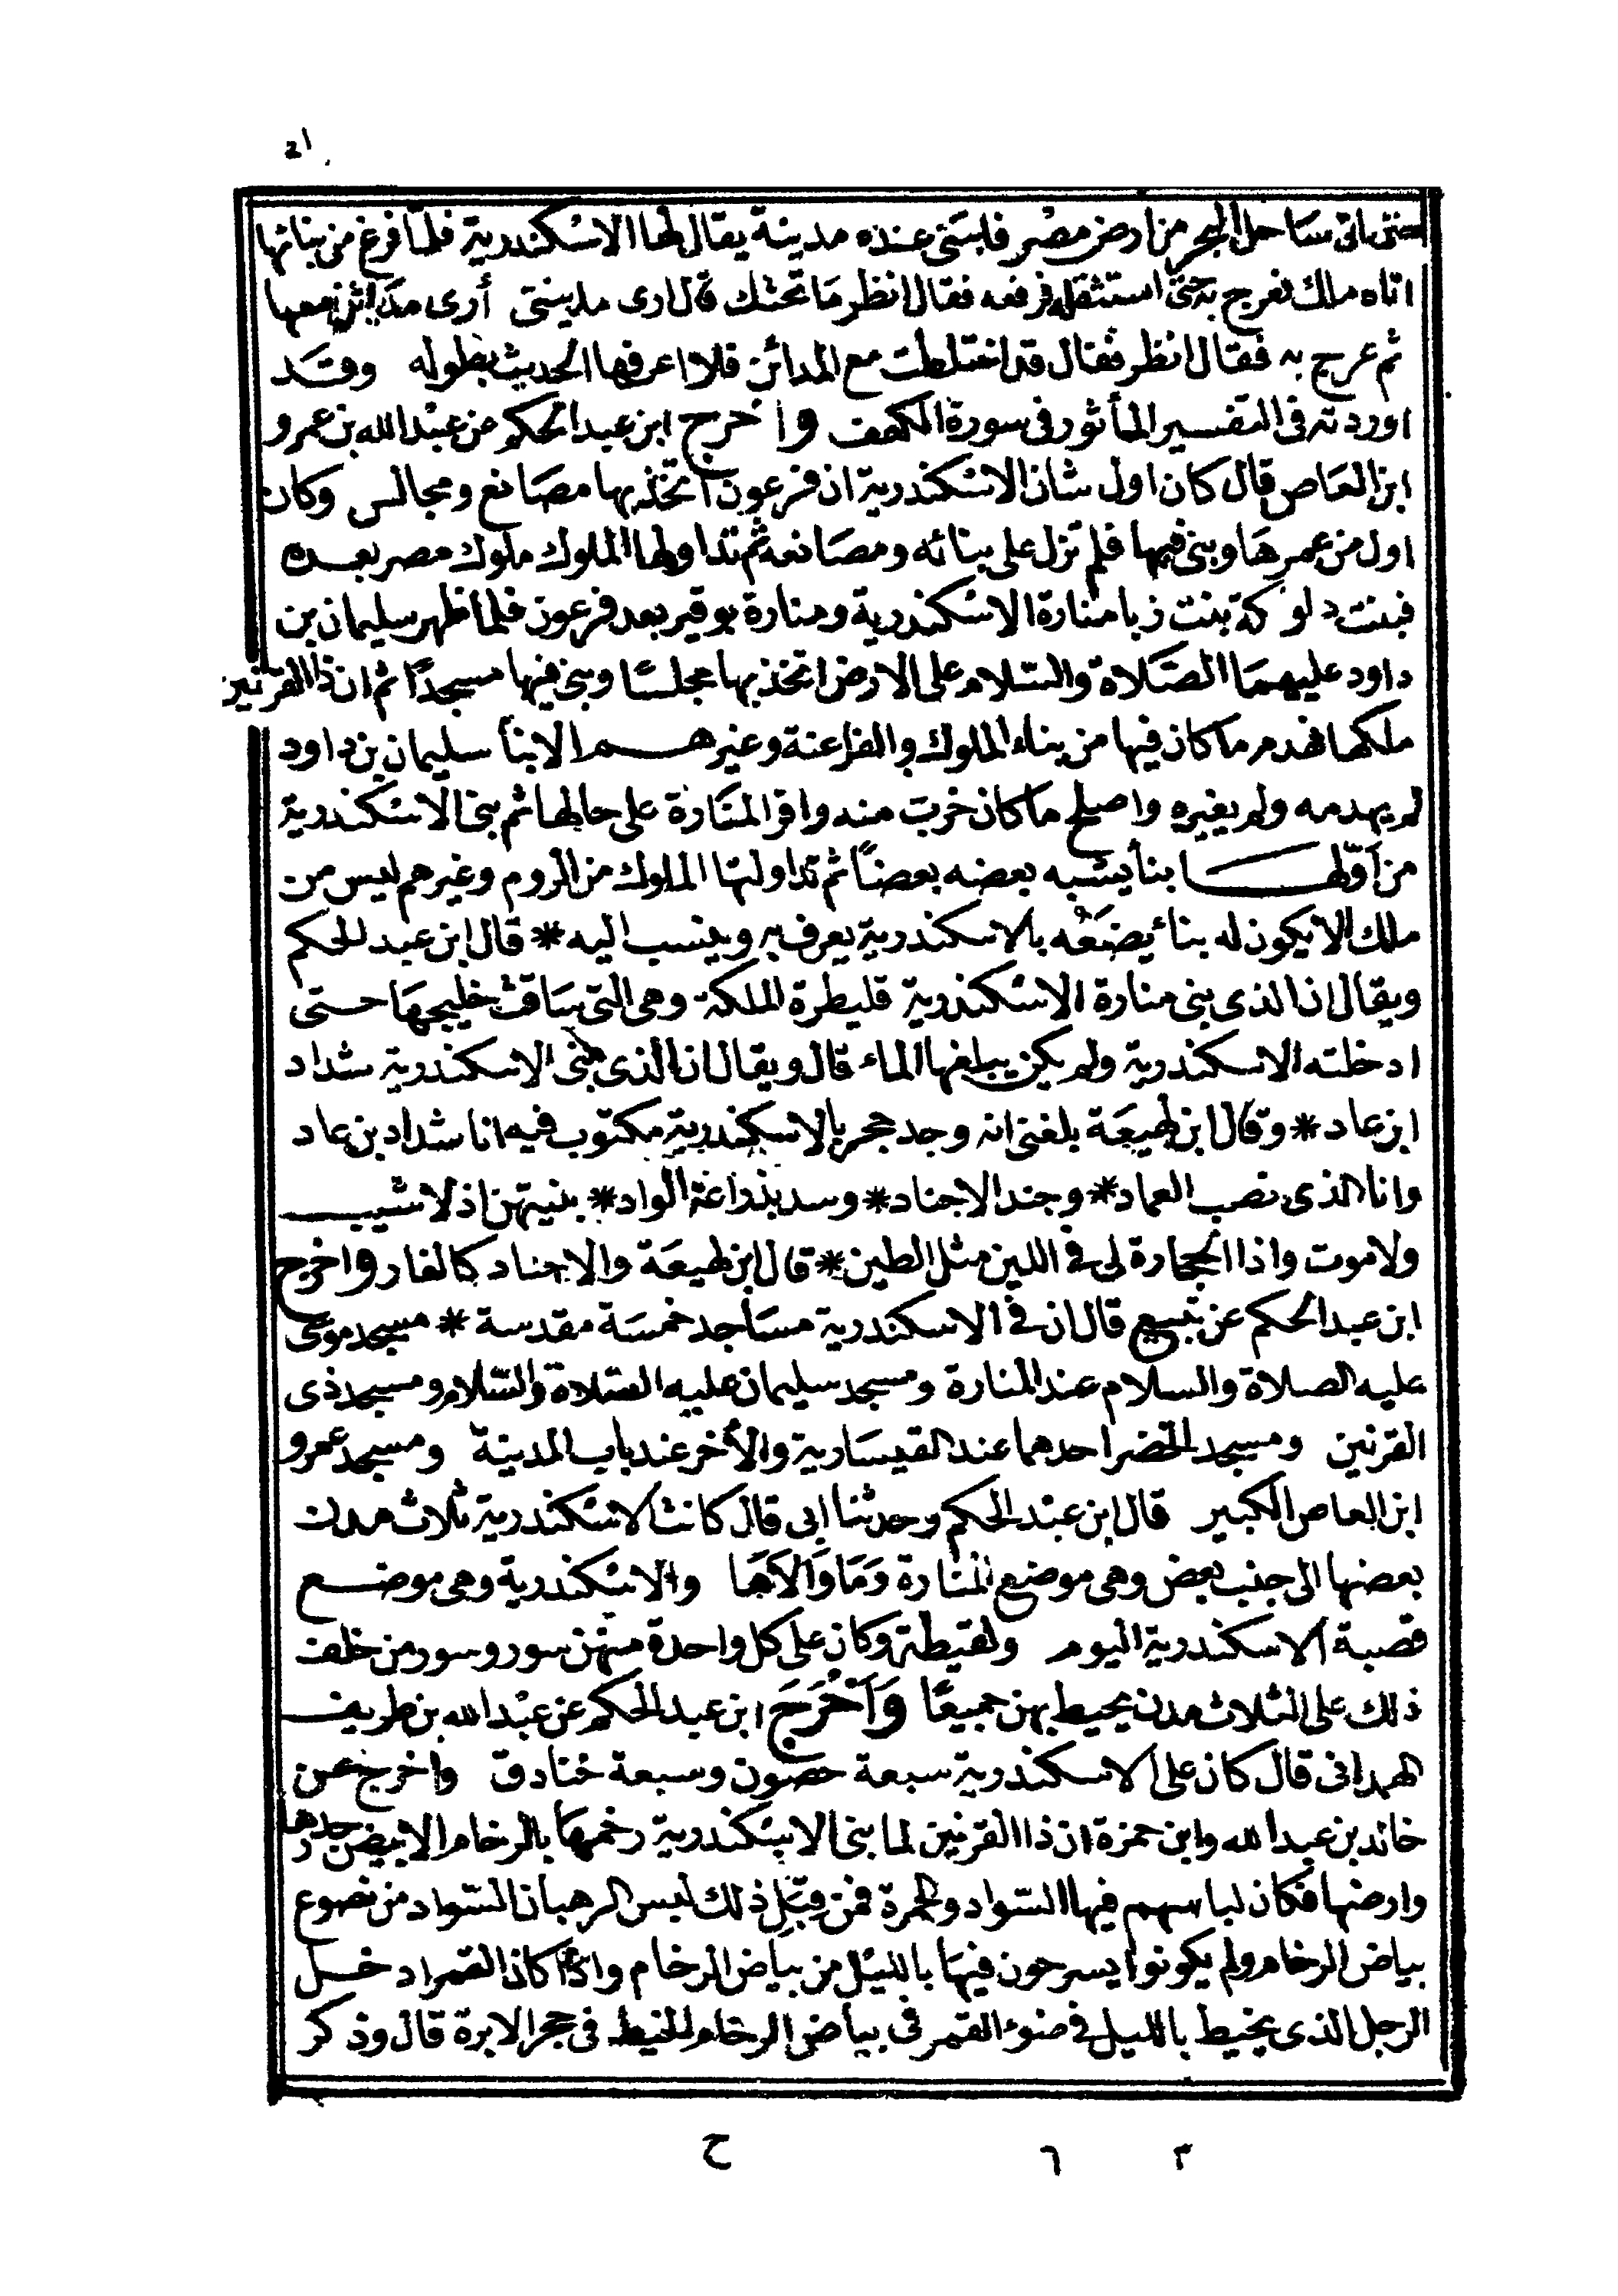 ٤١
حتى ياتى ساحل البحر من ارض مصر فابتنى عنده مدينة يقال لها الاسكندرية فلما فرغ من بنائها
اتاه ملك فعرج به حتى استثقله فرفعه فقال انظر ما تحتك قال ارى مدينتى أرى مدائن معها
ثم عرج به فقال انظر فقال قد اختلطت مع المدائن فلا اعرفها الحديث بطوله وقد
اوردته فى التفسير المأثور فى سورة الكهف واخرج ابن عبد الحكم عن عبد الله بن عمرو
ابن العاص قال كان اول شان الاسكندرية ان فرعون اتخذ بها مصانع ومجالس وكان
اول من عمرها وبنى فيها فلم تزل على بنائه ومصانعه ثم تداولها الملوك ملوك مصر بعده
فبنت دلوكة بنت زبا منارة الاسكندرية ومنارة بوقير بعد فرعون فلما ظهر سليمان بن
داود عليهما الصلاة والسلام على الارض اتخذ بها مجلسًا وبنى فيها مسجدًا ثم ان ذا القرنين
ملكها فهدم ما كان فيها من بناء الملوك والفراعنة وغيرهم الا بنأ سليمان بن داود
لم يهدمه ولم يغيره واصلح ما كان خرب منه واقر المنارة على حالها ثم بنى الاسكندرية
من اوّلها بنأ يشبه بعضه بعضًا ثم تداولتها الملوك من الروم وغيرهم ليس من
ملك الا يكون له بناء يضعه بالاسكندرية يعرف به وينسب اليه * قال ابن عبد الحكم
ويقال ان الذى بنى منارة الاسكندرية قليطرة الملكة وهى التى ساقت خليجها حتى
ادخلته الاسكندرية ولم يكن يبلغها الماء قال ويقال ان الذى بنى الاسكندرية شداد
ابن عاد * وقال ابن لهيعة بلغنى انه وجد حجر بالاسكندرية مكتوب فيه انا شداد بن عاد
وانا الذى نصب العماد * وجند الاجناد * وسد بذراعة الواد * بنيتهن اذ لا شيب
ولا موت واذا الحجارة لى فى اللين مثل الطين * قال ابن لهيعة والاجناد كالغار واخرج
ابن عبد الحكم عن تبيع قال ان فى الاسكندرية مساجد خمسة مقدسة * مسجد موسى
عليه الصلاة والسلام عند المنارة ومسجد سليمان عليه الصلاة والسلام ومسجد ذى
القرنين ومسجد الخضر احدهما عند القيسارية والأخر عند باب المدينة ومسجد عمرو
ابن العاص الكبير قال ابن عبد الحكم وحدثنا ابى قال كانت الاسكندرية ثلاث مدن
بعضها الى جنب بعض وهى موضع المنارة وَمَا وَالَاهَا والاسكندرية وهى موضع
قصبة الاسكندرية اليوم ولقيطة وكان على كل واحدة منهن سور وسور من خلف
ذلك على الثلاث مدن يحيط بهن جميعًا وَاَخْرَجَ ابن عبد الحكم عن عبد الله بن طريف
الهمدانى قال كان على الاسكندرية سبعة حصون وسبعة خنادق واخرج عن
خالد بن عبد الله وابن حمزة ان ذا القرنين لما بنى الاسكندرية رخمها بالرخام الابيض جدرها
وارضها فكان لباسهم فيها السواد والحمرة فمن قِبَلِ ذلك لبس الرهبان السواد من نصوع
بياض الرخام ولم يكونوا يسرحون فيها بالليل من بياض الرخام واذا كان القمر ادخل
الرجل الذى يخيط بالليل فى ضوء القمر فى بياض الرخام الخيط فى حجر الابرة قال وذكر
٣ ٦ ح